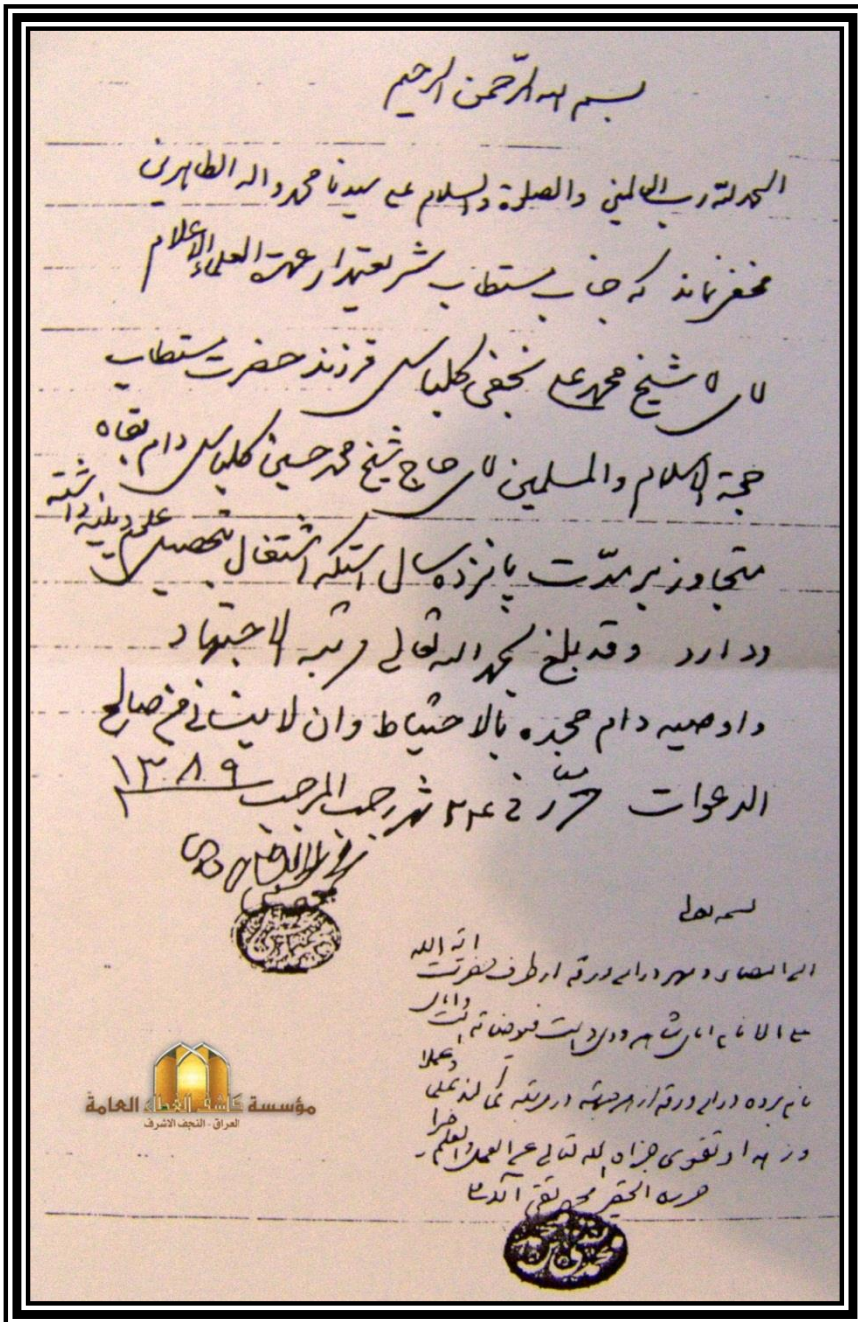 بسم الله الرّحمن الرحيم
الحمدلله رب العالمين والصلوة والسلام على سيدنا محمد واله الطاهرين
مخفى نماند كه جناب مستطاب شريعتمدار عمدة العلماء الاعلام
اقاى اقا شيخ محمد على نجفى كلباسى فرزند حضرت مستطاب
حجة الاسلام والمسلمين اقاى حاج شيخ محمد حسين كلباسى دام بقاه
متجاوز بر مدّت پانزده سال استكه اشتغال بتحصيل علوم دينيه داشته
ودارد وقد بلغ بحمد الله تعالى مرتبه الاجتهاد
واوصيه دام مجده بالاحتياط وان لا ينسانى من صالح
الدعوات حرّر فى ٢٤ شهر رجب المرجب ١٣٨٩
بسمه تعالى
امضاء و مهر در اين ورقه از طرف حضرت اية الله
اقاى شاهرودى است
نام برده در اين ورقه از هر جهته در مرتبه كمال علمى وعملا
وزهد و تقوى جزاه الله تعالى عن العمل والعلم خيرا
حرره الحقير محمد تقى
مؤسسة كاشف الغطاء العامة
العراق - النجف الاشرف